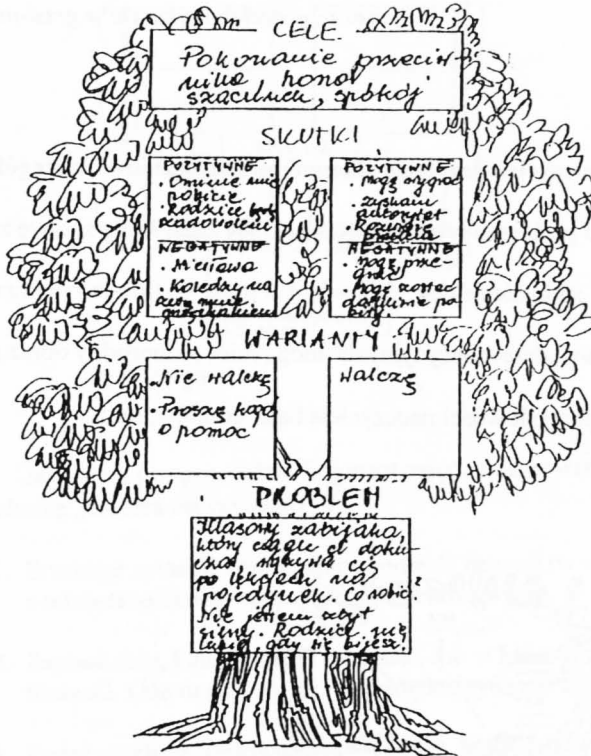 CELE
Pokonanie przeciw-
nika, honor
szacunek, spokój
SKUTKI
POZYTYWNE
. Ominie mnie
pobicie
. Rodzice będą
zadowoleni
NEGATYWNE
. Niesława
. Koledzy na
zwą mnie
mięczakiem
POZYTYWNE
. mogę wygrać
. zyskam
autorytet
. Rozwiążę
NEGATYWNE
. mogę prze-
grać
. mogę zostać
dotkliwie po
bity
WARIANTY
. Nie walczę
. Proszę kogoś
o pomoc
Walczę
PROBLEM
Klasowy zabijaka,
który ciągle ci doku-
cza wyzywa cię
po lekcjach na
pojedynek. Co robić?
Nie jesteś zbyt
silny. Rodzice nie
lubią, gdy się bijesz.